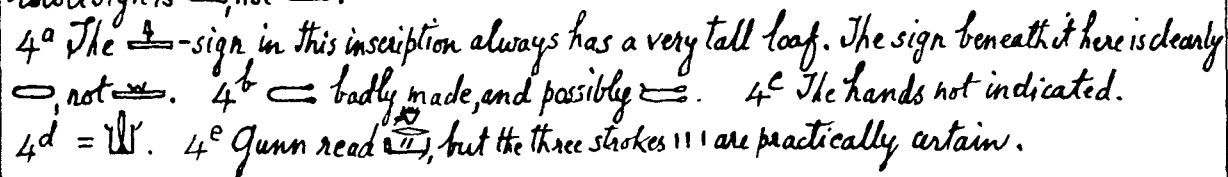 4ᵃ The 𓊵-sign in this inscription always has a very tall loaf. The sign beneath it here is clearly
, not . 4ᵇ badly made, and possibly . 4ᶜ The hands not indicated.
4ᵈ = . 4ᵉ Gunn read , but the three strokes ııı are practically certain.